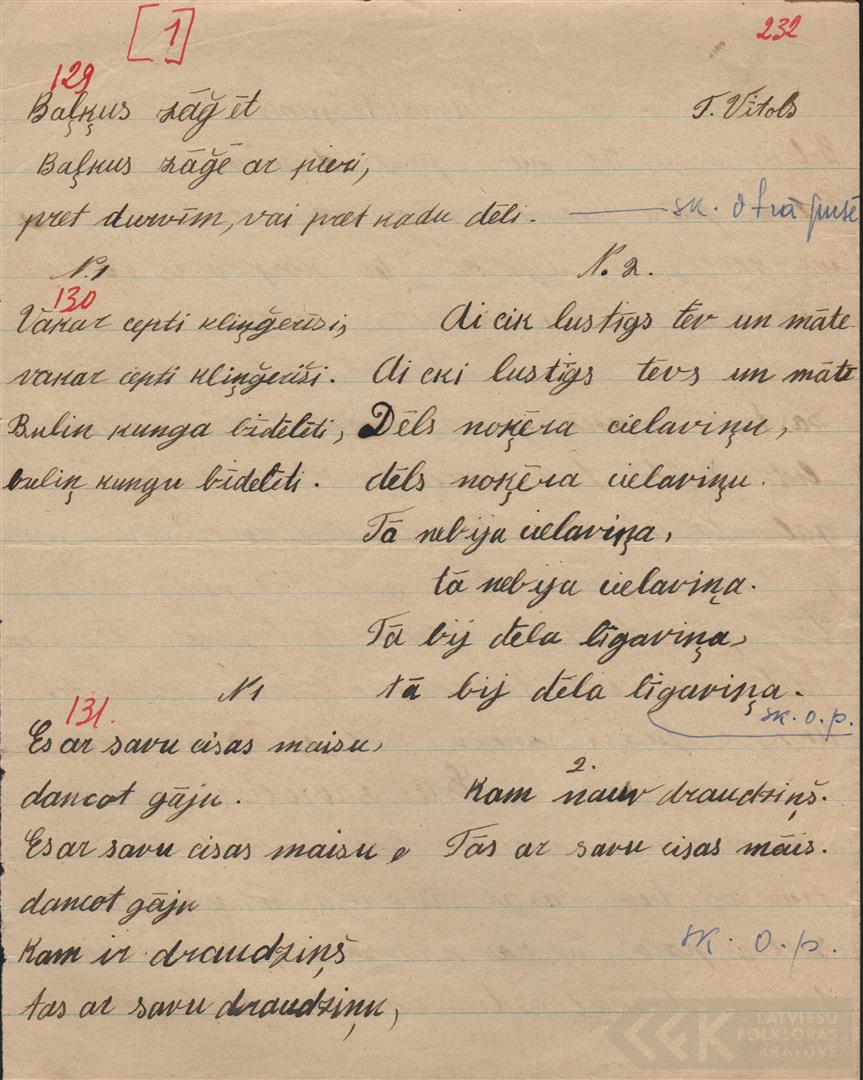 [1]
232
129
Baļķus zāģēt
T. Vītols
Baļķus zāģē ar pieri,
pret durvīm, vai pret kādu dēli.
sk. otrā pusē
N.1
130
Vakar cepti kliņģerīši,
vakar cepti kliņģerīši.
Buliņ kunga bīdelēti,
buliņ kungu bīdelēti.
N. 2.
Ai cik lustīgs tēv un māte
Ai cki lustīgs tevs un māte
Dēls noķēra cielaviņu,
dēls noķēra cielaviņu.
Tā nebija cielaviņa,
tā nebija cielaviņa.
Tā bij dēla līgaviņa,
tā bij dēla līgaviņa.
sk. o. p.
N1
131.
Es ar savu cisas maisu,
dancot gāju.
Es ar savu cisas maisu,
dancot gāju
Kam ir draudziņš
tas ar savu draudziņu,
2.
Kam nauv draudziņš.
Tās ar savu cisas māis.
sk. o. p.
LATVIEŠU
FOLKLORAS
KRĀTUVE